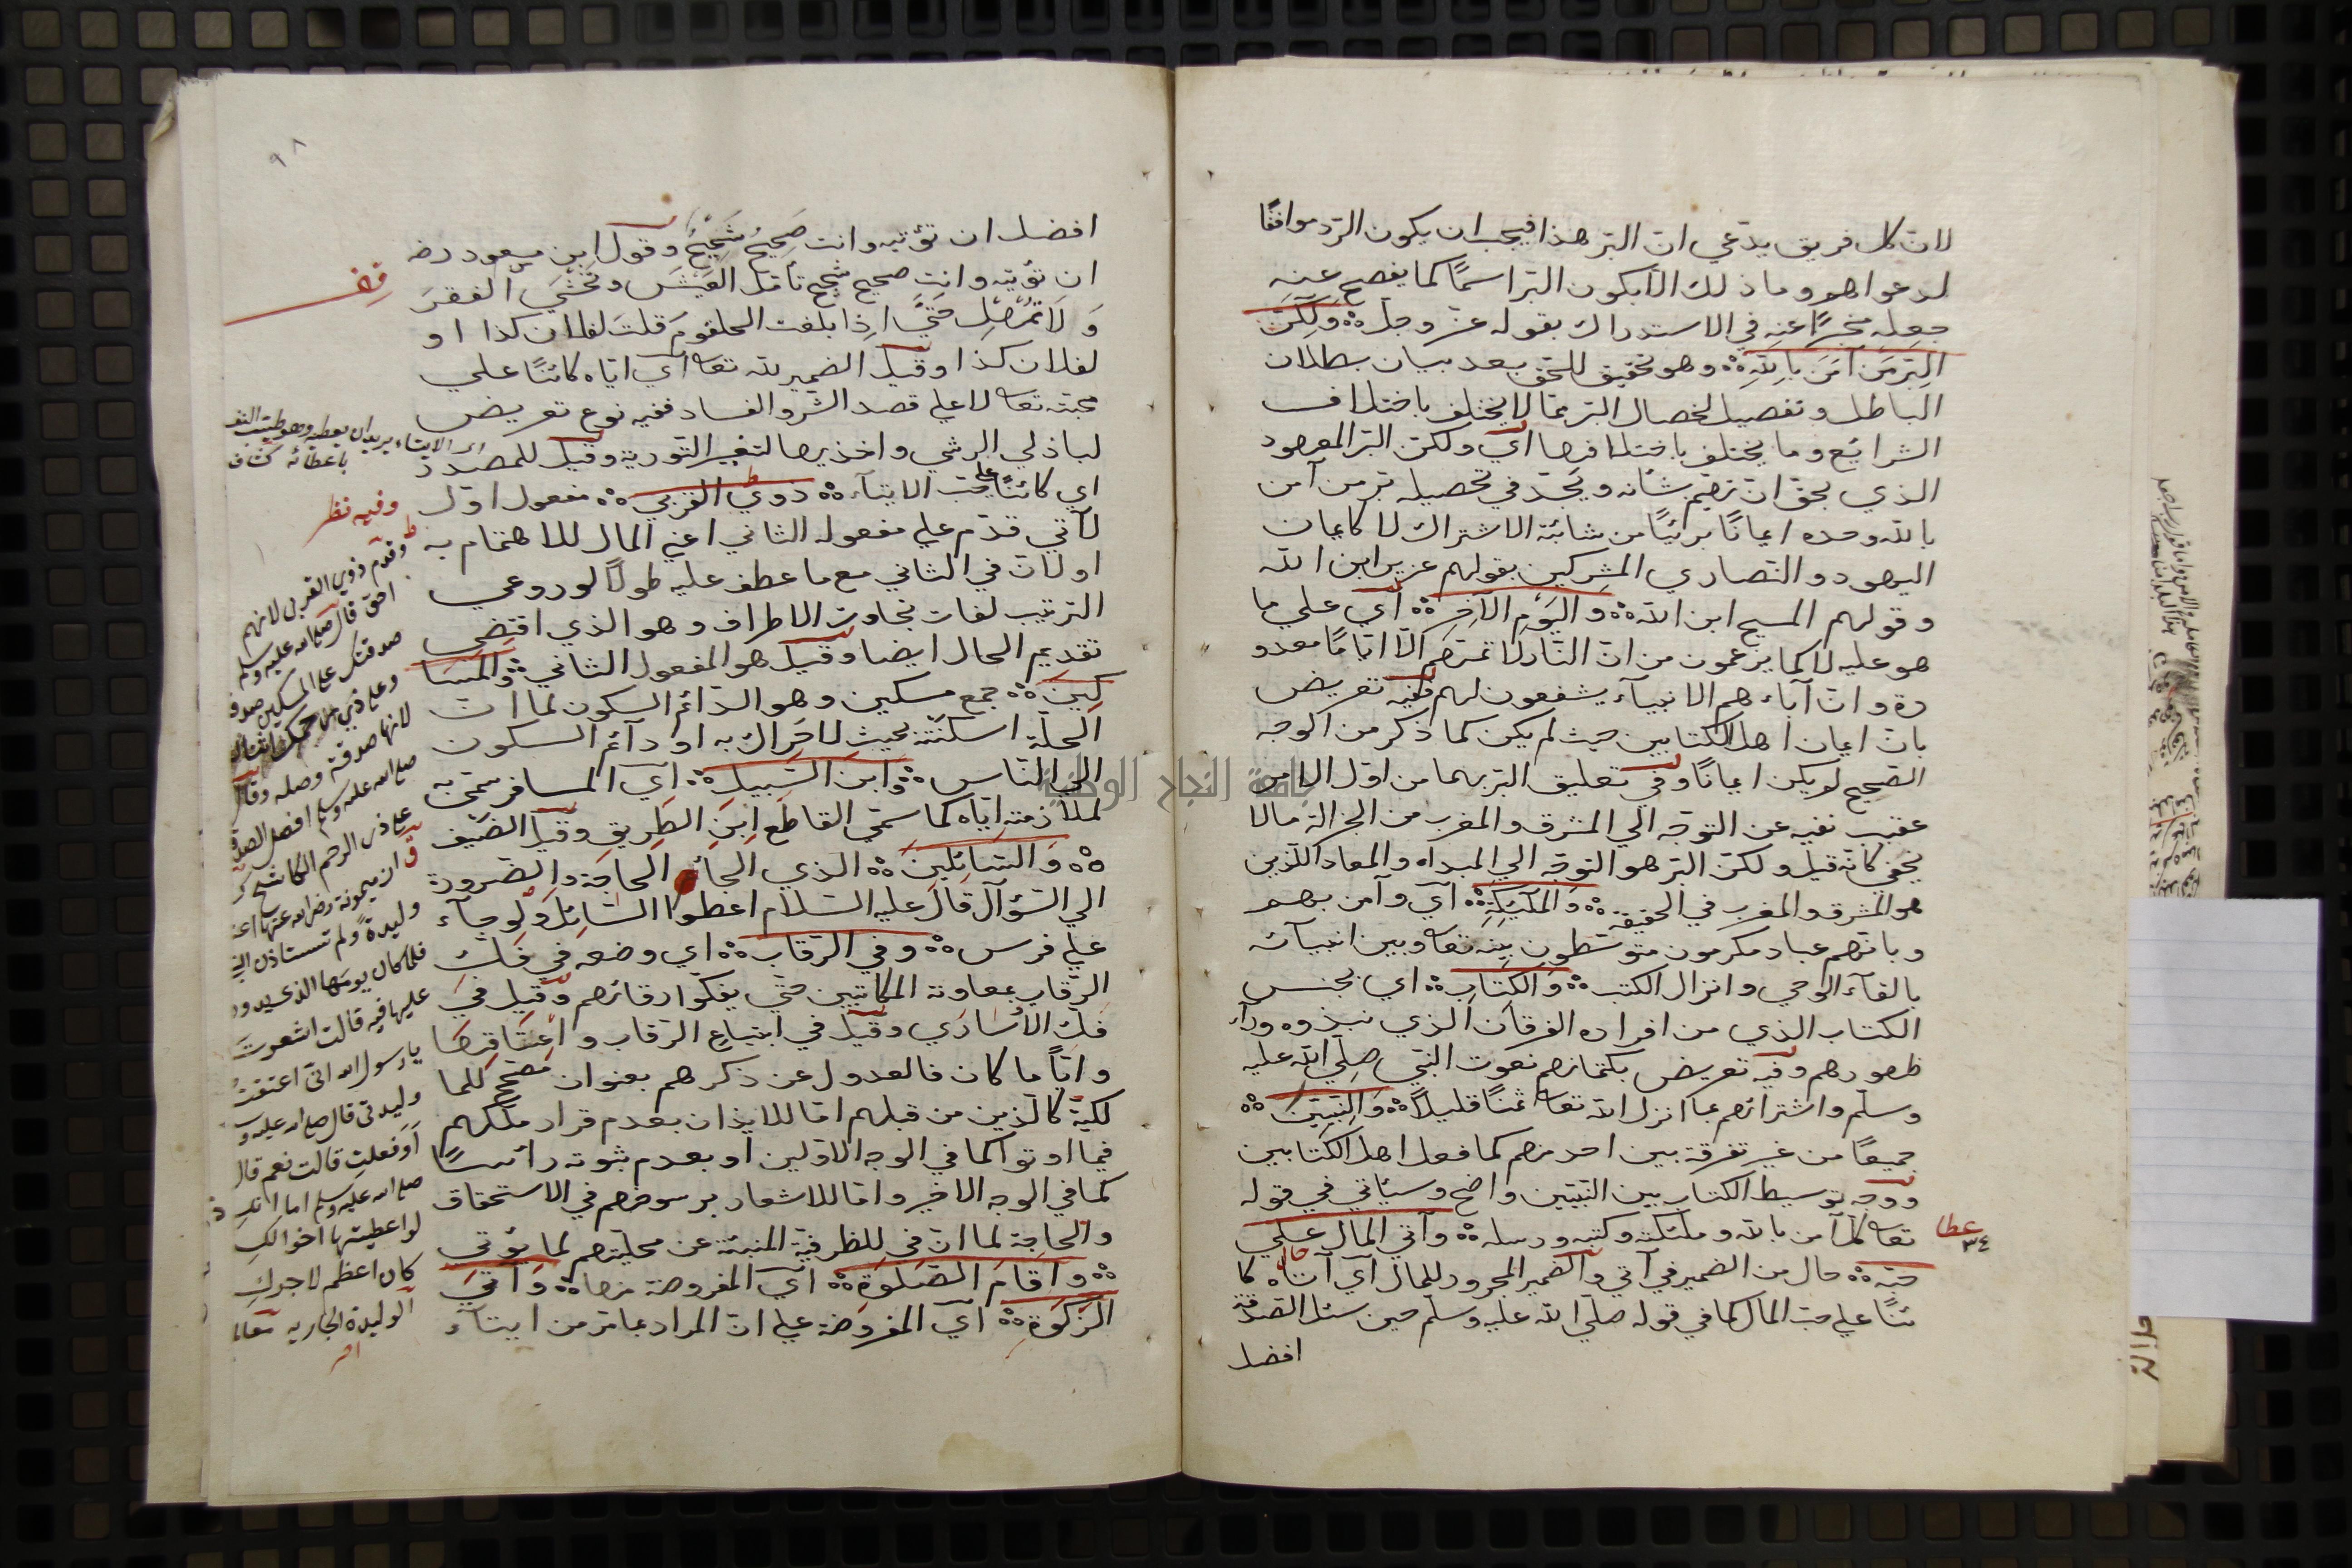 لان كل فريق يدّعي ان البرّ هذا فيجب ان يكون الردّ موافقًا
لدعواهم وما ذلك الا بكون البرّ اسمًا كما يفصح عنه
جعله مخبرًا عنه في الاستدراك بقوله عزّ وجلّ ولكنّ
البرّ من آمن بالله وهو تحقيق للحق بعد بيان بطلان
الباطل وتفصيل لخصال البرّ ممّا لا يختلف باختلاف
الشرائع وما يختلف باختلافها أي ولكن البرّ المعهود
الذي يحقّ ان يهتم بشأنه ويجدّ في تحصيله برّ من آمن
بالله وحده ايمانًا بريئًا من شائبة الاشتراك لا كايمان
اليهود والنصاري المشركين بقولهم عزير ابن الله
وقولهم المسيح ابن الله واليوم الآخر أي علي ما
هو عليه لا كما يزعمون من انّ النار لا تمسّهم الّا ايّامًا معدو
دة وانّ آباءهم الانبياء يشفعون لهم ففيه تعريض
بانّ ايمان اهل الكتابين حيث لم يكن كما ذكر من الوجه
الصحيح لم يكن ايمانًا وفي تعليق البرّ بهما من اوّل الامر
عقيب نفيه عن التوجّه الي المشرق والمغرب من الجزالة ما لا
يخفي كانّه قيل ولكنّ البرّ هو التوجّه الي المبداء والمعاد اللّذين
هو المشرق والمغرب في الحقيقة والملئكة أي وآمن بهم
وبانّهم عباد مكرمون متوسّطون بينه تعا وبين انبيائه
بالقاء الوحي وانزال الكتب والكتاب أي بجنس
الكتاب الذي من افراده الفرقان الذي نبذوه وراء
ظهورهم وفيه تعريض بكتمانهم نعوت النبيّ صلي الله عليه
وسلّم واشترائهم بما انزل الله تعا ثمنًا قليلًا والنبيّين
جميعًا من غير تفرقة بين احد منهم كما فعل اهل الكتابين
ووجه توسيط الكتاب بين النبيّين واضح وسيأتي في قوله
تعا كل آمن بالله وملئكته وكتبه ورسله وآتي المال علي
عطا
٣٤
حبّه حال من الضمير في آتي والضمير المجرور للمال أي آتاه كا
حال
ئنًا علي حبّ المال كما في قوله صلّي الله عليه وسلّم حين سئل الصدقة
افضل
٩٨
افضل ان تؤتيه وانت صحيح شحيح وقول ابن مسعود رضـ
ان تؤتيه وانت صحيح شحيح تأمل العيش وتخشي الفقر
ولا تمهل حتّي اذا بلغت الحلقوم قلت لفلان كذا او
لفلان كذا وقيل الضمير لله تعا أي آتاه كائنًا علي
محبته تعا لا علي قصد الشر والفساد ففيه نوع تعريض
لباذلي الرشي واخذيها لتغيير التورية وقيل للمصدر
اي كائنًا علي حبّ الايتاء ذوي القربي مفعول اوّل
لآتي قدّم علي مفعوله الثاني اعني المال للاهتمام به
او لانّ في الثاني مع ما عطف عليه طولًا لو روعي
الترتيب لفات تجاوب الاطراف وهو الذي اقتضي
تقديم الحال ايضا وقيل هو المفعول الثاني والمسا
كين جمع مسكين وهو الدائم السكون لما انّ
الخلّة اسكنته بحيث لا حراك به او دائم السكون
الي الناس وابن السّبيل أي المسافر سمّي به
لملازمته ايّاه كما سمّي القاطع ابن الطريق وقيل الضيف
والسّائلين الذي الجائه الحاجة والضرورة
الي السّؤال قال عليه السّلام اعطوا السّائل ولو جآء
علي فرس وفي الرّقاب اي وضعه في فكّ
الرقاب بمعاونة المكاتبين حتّي يفكّوا رقابهم وقيل في
فكّ الأساري وقيل في ابتياع الرّقاب واعتاقها
وايّاً ما كان فالعدول عن ذكرهم بعنوان مصحّح للما
لكيّة كالّذين من قبلهم امّا للايذان بعدم قرار ملكهم
فيما اوتوا كما في الوجه الاوّلين او بعدم ثبوته رأسًا
كما في الوجه الاخير وامّا للاشعار برسوخهم في الاستحقاق
والحاجة لما انّ في للظرفية المنبئة عن محلّيتهم لما يؤتي
واقام الصّلوة أي المفروضة منها وآتي
الزّكوة أي المفروضة علي ان المراد بما مرّ من ايتآء
اي الايتاء يريد ان يعطيه وهو طيّب النفـ
باعطائه كشاف
وفيه نظر
وقدّم ذوي القربى لانهم
احقّ قال صلى الله عليه وسلم
صدقتك على المسكين صدقة
وعلى ذي
لانها صدقة وصلة وقال
صلى الله عليه وسلم افضل الصدقة
على ذى الرحم الكاشح
ان ميمونة رضى الله عنها
وليدة ولم تستاذن
فلما كان يومها الذى يدور
عليها فيه قالت اشعرت
يا رسول الله انى اعتقت
وليدتى قال صلى الله عليه و
أوفعلت قالت نعم قال
صلى الله عليه وسلم اما انك
لو اعطيتها اخوالك
كان اعظم لاجرك
الوليدة الجارية
جامعة النجاح الوطنية